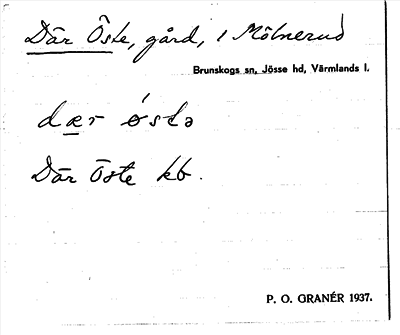 Där Öste, gård, i Mölnerud
Brunskogs sn, Jösse hd, Värmlands l.
dær östə
Där Öste kb.
P. O. GRANÉR 1937.